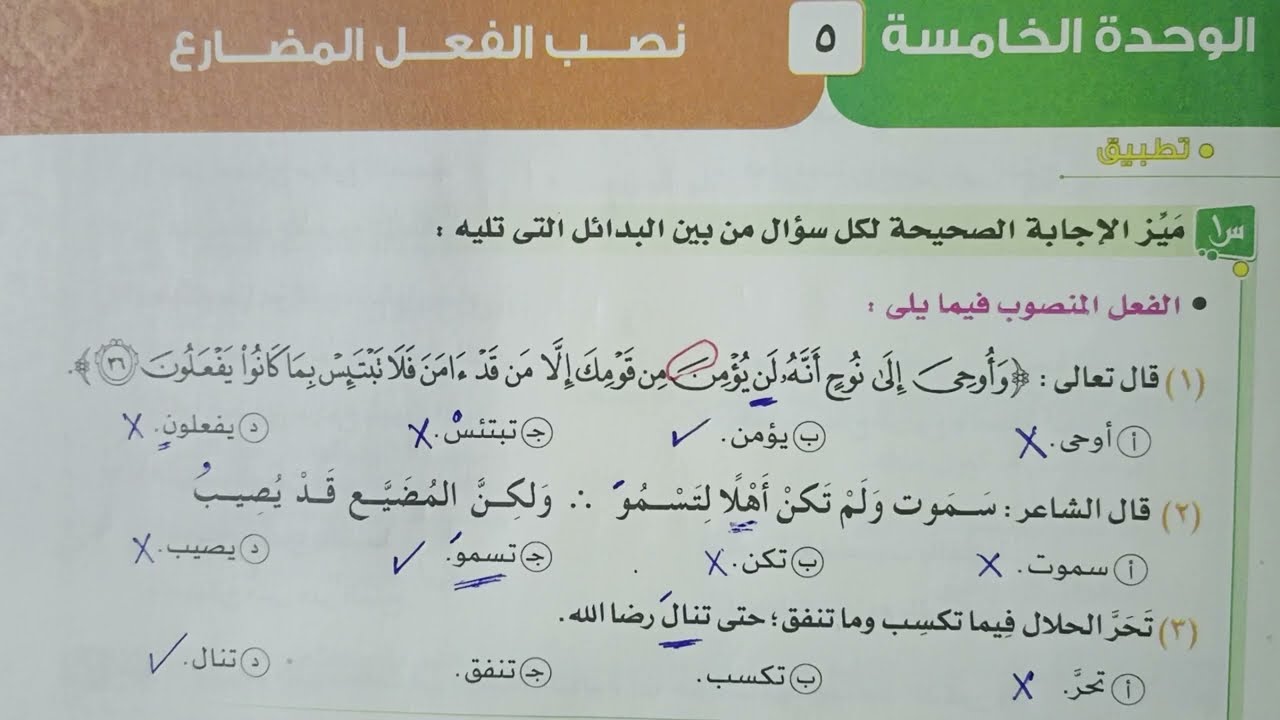 الوحدة الخامسة ٥ نصب الفعل المضارع
• تطبيق
س١ مَيِّز الإجابة الصحيحة لكل سؤال من بين البدائل التى تليه :
• الفعل المنصوب فيما يلى :
(١) قال تعالى : ﴿وَأُوحِىَ إِلَىٰ نُوحٍ أَنَّهُۥ لَن يُؤْمِنَ مِن قَوْمِكَ إِلَّا مَن قَدْ ءَامَنَ فَلَا تَبْتَئِسْ بِمَا كَانُوا۟ يَفْعَلُونَ ٣٦﴾.
أ أوحى. ب يؤمن. جـ تبتئسْ. د يفعلون.
(٢) قال الشاعر : سَمَوت وَلَمْ تَكنْ أَهْلًا لِتَسْمُوَ ∴ وَلكِنَّ المُضَيَّع قَدْ يُصِيبُ
أ سموت. ب تكن. جـ تسموَ. د يصيب.
(٣) تَحَرَّ الحلال فِيما تكسِب وما تنفق؛ حتى تنالَ رضا الله.
أ تحرَّ. ب تكسب. جـ تنفق. د تنال.